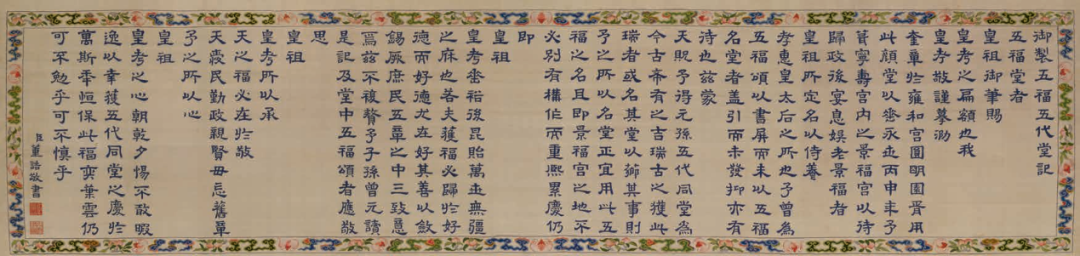 御製五福五代堂記
五福堂者
皇祖御筆賜
皇考之扁額也我
皇考敬謹摹泐
奎章於雍和宮圓明園胥用
此顏堂以垂永世丙申年予
葺寧壽宮內之景福宮以待
歸政後宴息娛老景福者
皇祖所定名以侍養
孝惠皇太后之所也予曾為
五福頌以書屏而未以五福
名堂者蓋引而未發抑亦有
待也茲蒙
天貺予得元孫五代同堂為
今古希有之吉瑞古之獲此
瑞者或名其堂以其事則
予之所以名堂正宜用此五
福之名且即景福宮之地不
必別有構作而重熙累慶仍
即
皇祖
皇考垂裕後昆貽萬世無疆
之庥也若夫獲福必歸於好
德而好德尤在好其善以斂
錫厥庶民五章之中三致意
焉茲不複贅子子孫曾元讀
是記及堂中五福頌者應敬
思
皇祖
皇考所以承
天之福必在於敬
天養民勤政親賢毋忘舊章
予之所以心
皇祖
皇考之心朝乾夕惕不敢暇
逸以幸獲五代同堂之慶於
萬斯年恒保此福奕葉雲仍
可不勉乎可不慎乎
臣董誥敬書